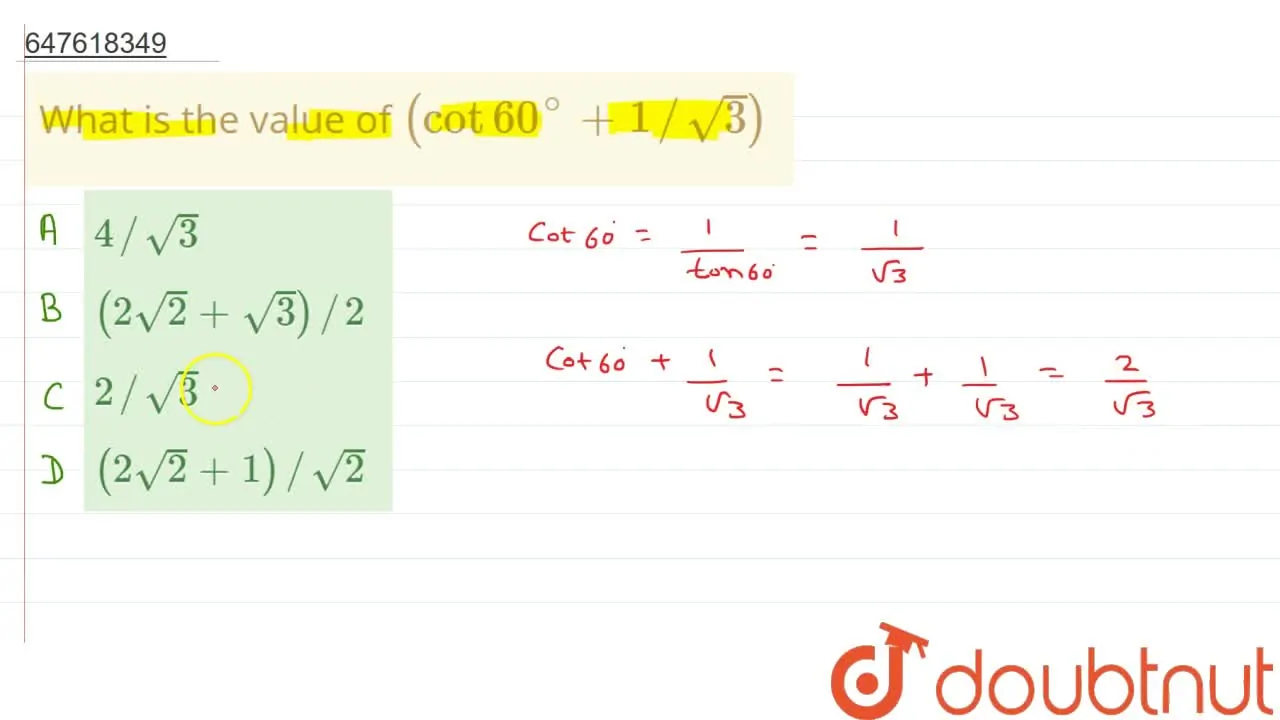 647618349
What is the value of (cot 60° + 1/√3)
A 4/√3
B (2√2 + √3)/2
C 2/√3
D (2√2 + 1)/√2
Cot 60° = 1/tan 60° = 1/√3
Cot 60° + 1/√3 = 1/√3 + 1/√3 = 2/√3
doubtnut